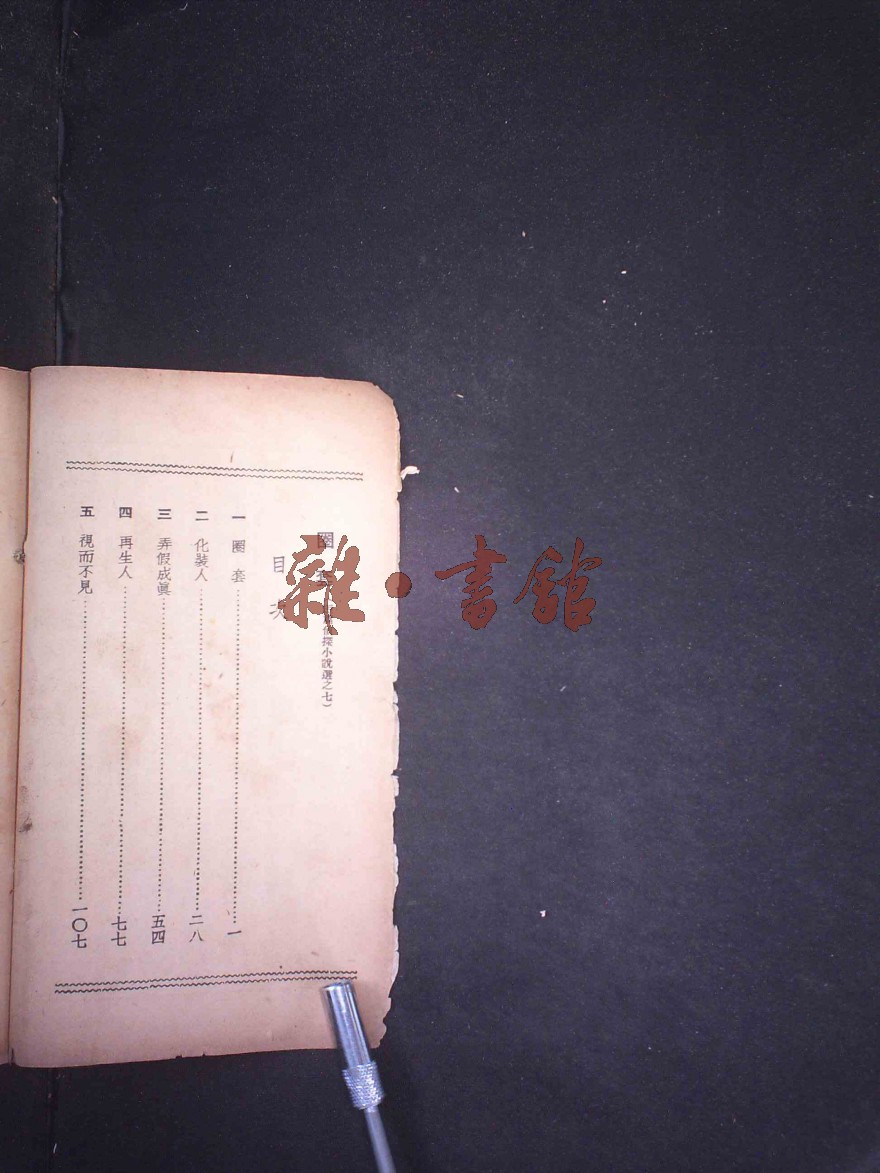 圈套 偵探小說選之七）
目次
一 圈套……一
二 化裝人……二八
三 弄假成眞……五四
四 再生人……七七
五 視而不見……一〇七
雜·書館